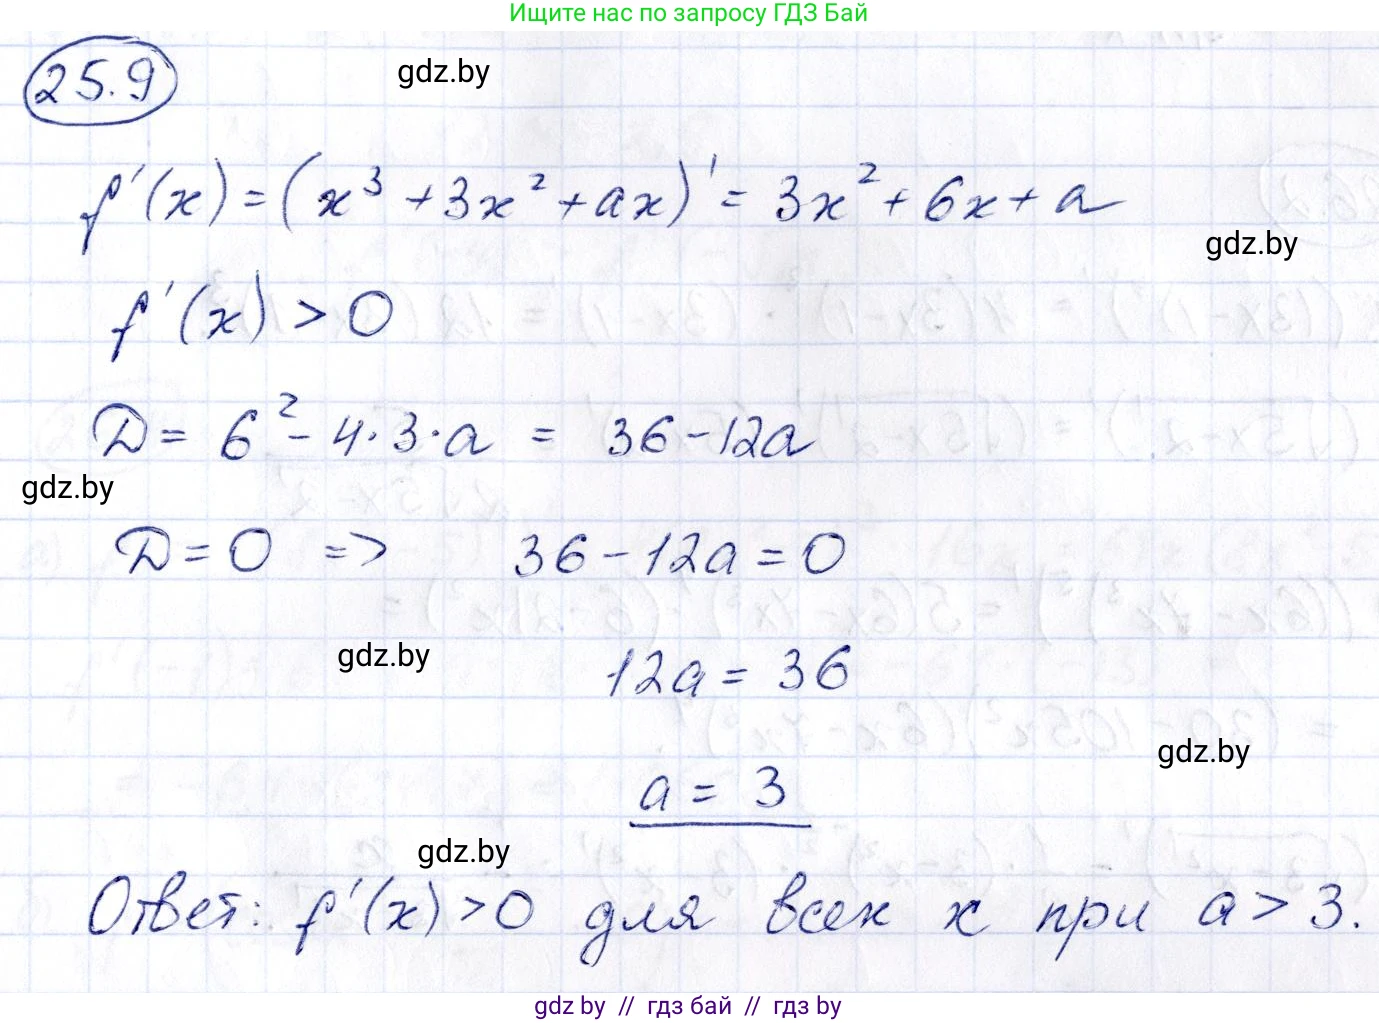 Ищите нас по запросу ГДЗ Бай
25.9
gdz.by
f'(x) = (x³ + 3x² + ax)' = 3x² + 6x + a
gdz.by
f'(x) > 0
D = 6² - 4·3·a = 36 - 12a
gdz.by
D = 0 => 36 - 12a = 0
gdz.by
12a = 36
gdz.by
a = 3
gdz.by
Ответ: f'(x) > 0 для всех x при a > 3.
gdz by // гдз бай // гдз by